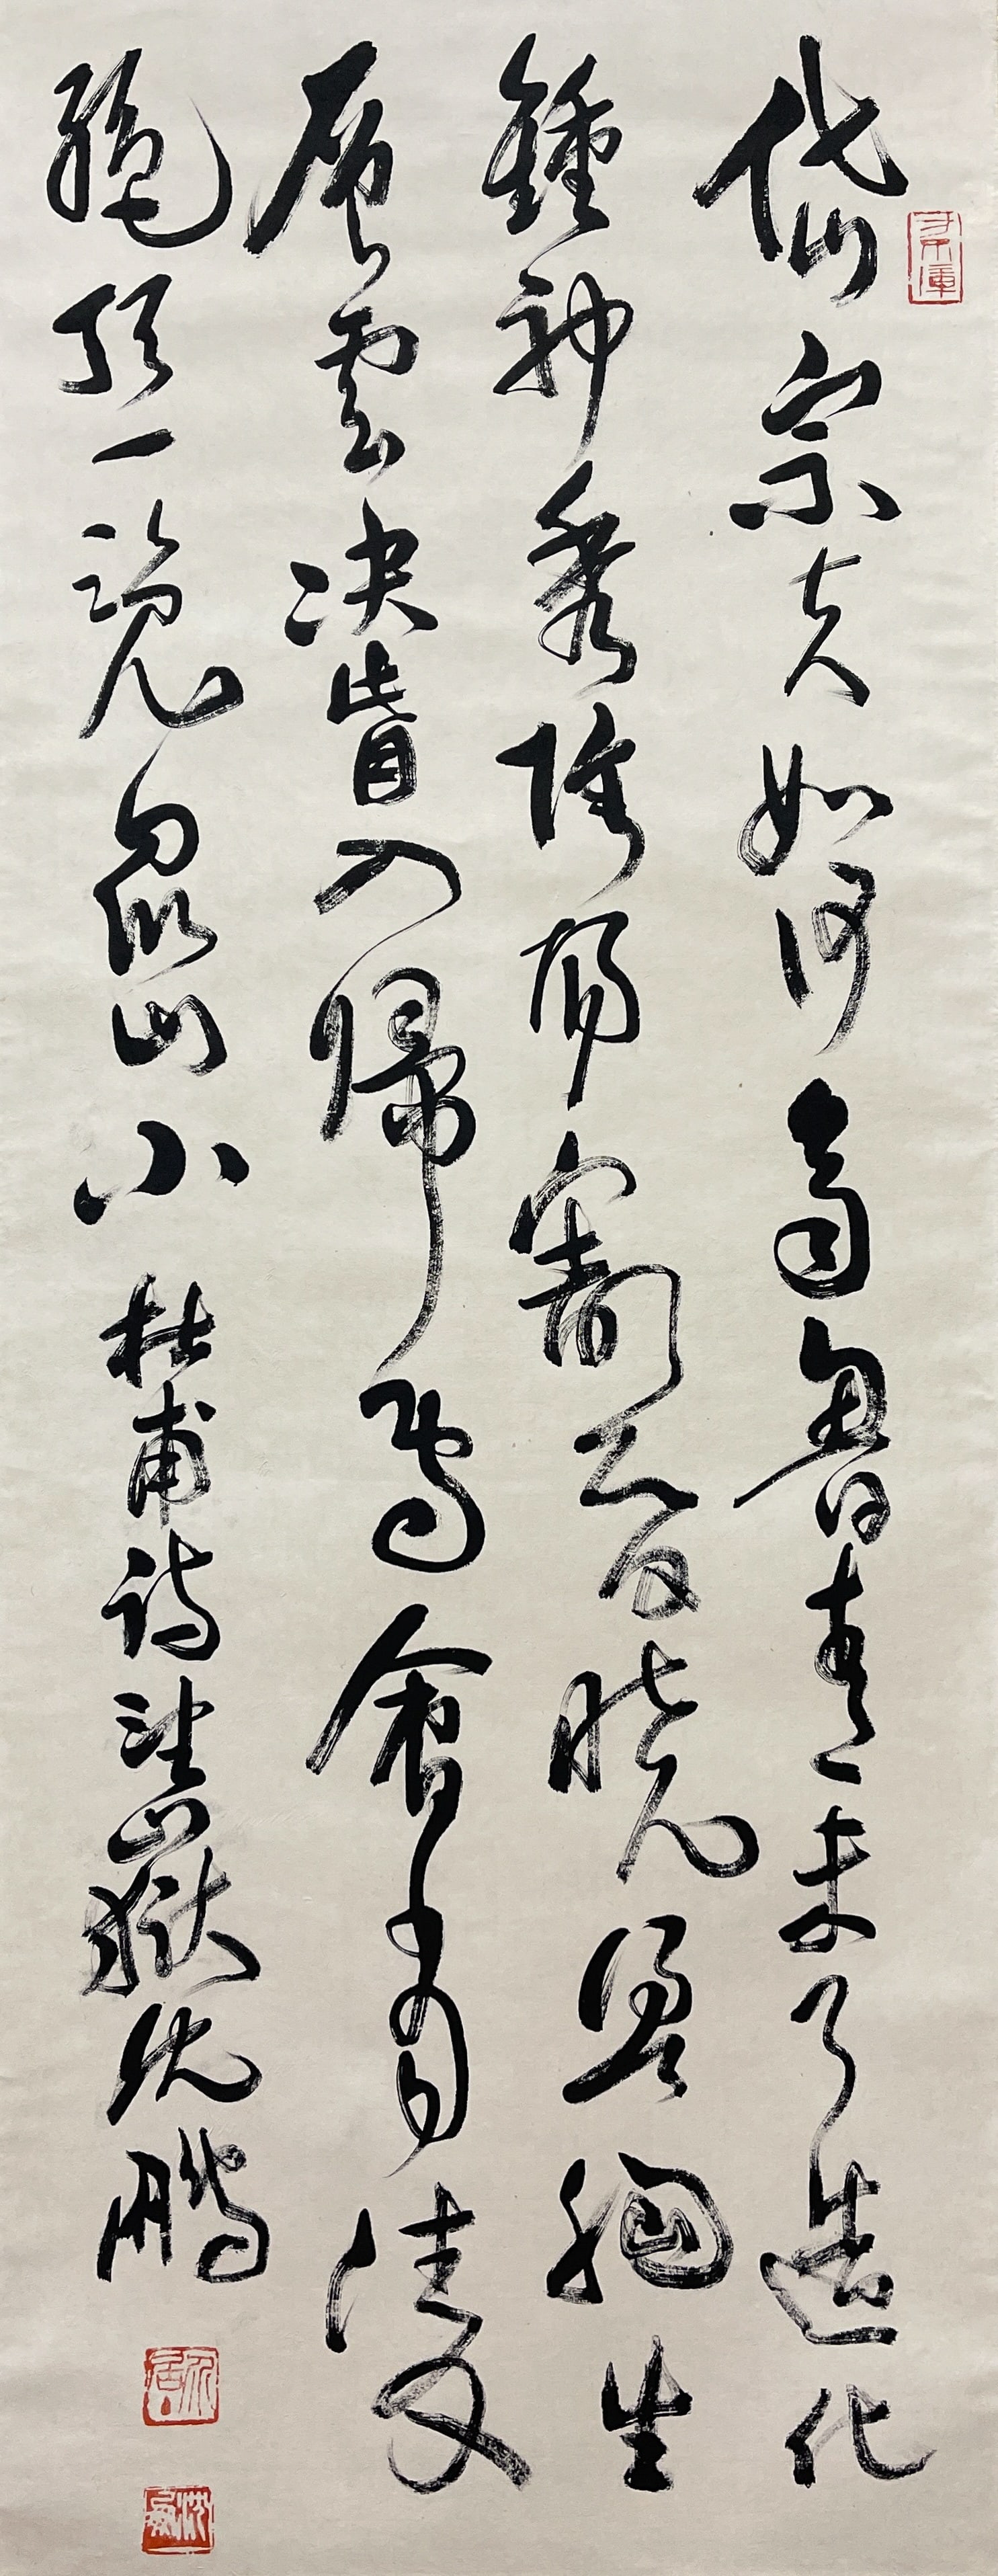 岱宗夫如何齊魯青未了造化
鍾神秀陰陽割昏曉盪胸生
層雲決眥入歸鳥會當凌
絕頂一覽眾山小杜甫詩望嶽沈鵬